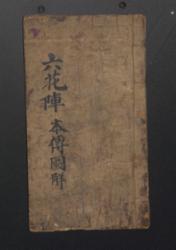 六花陣本傳圖解